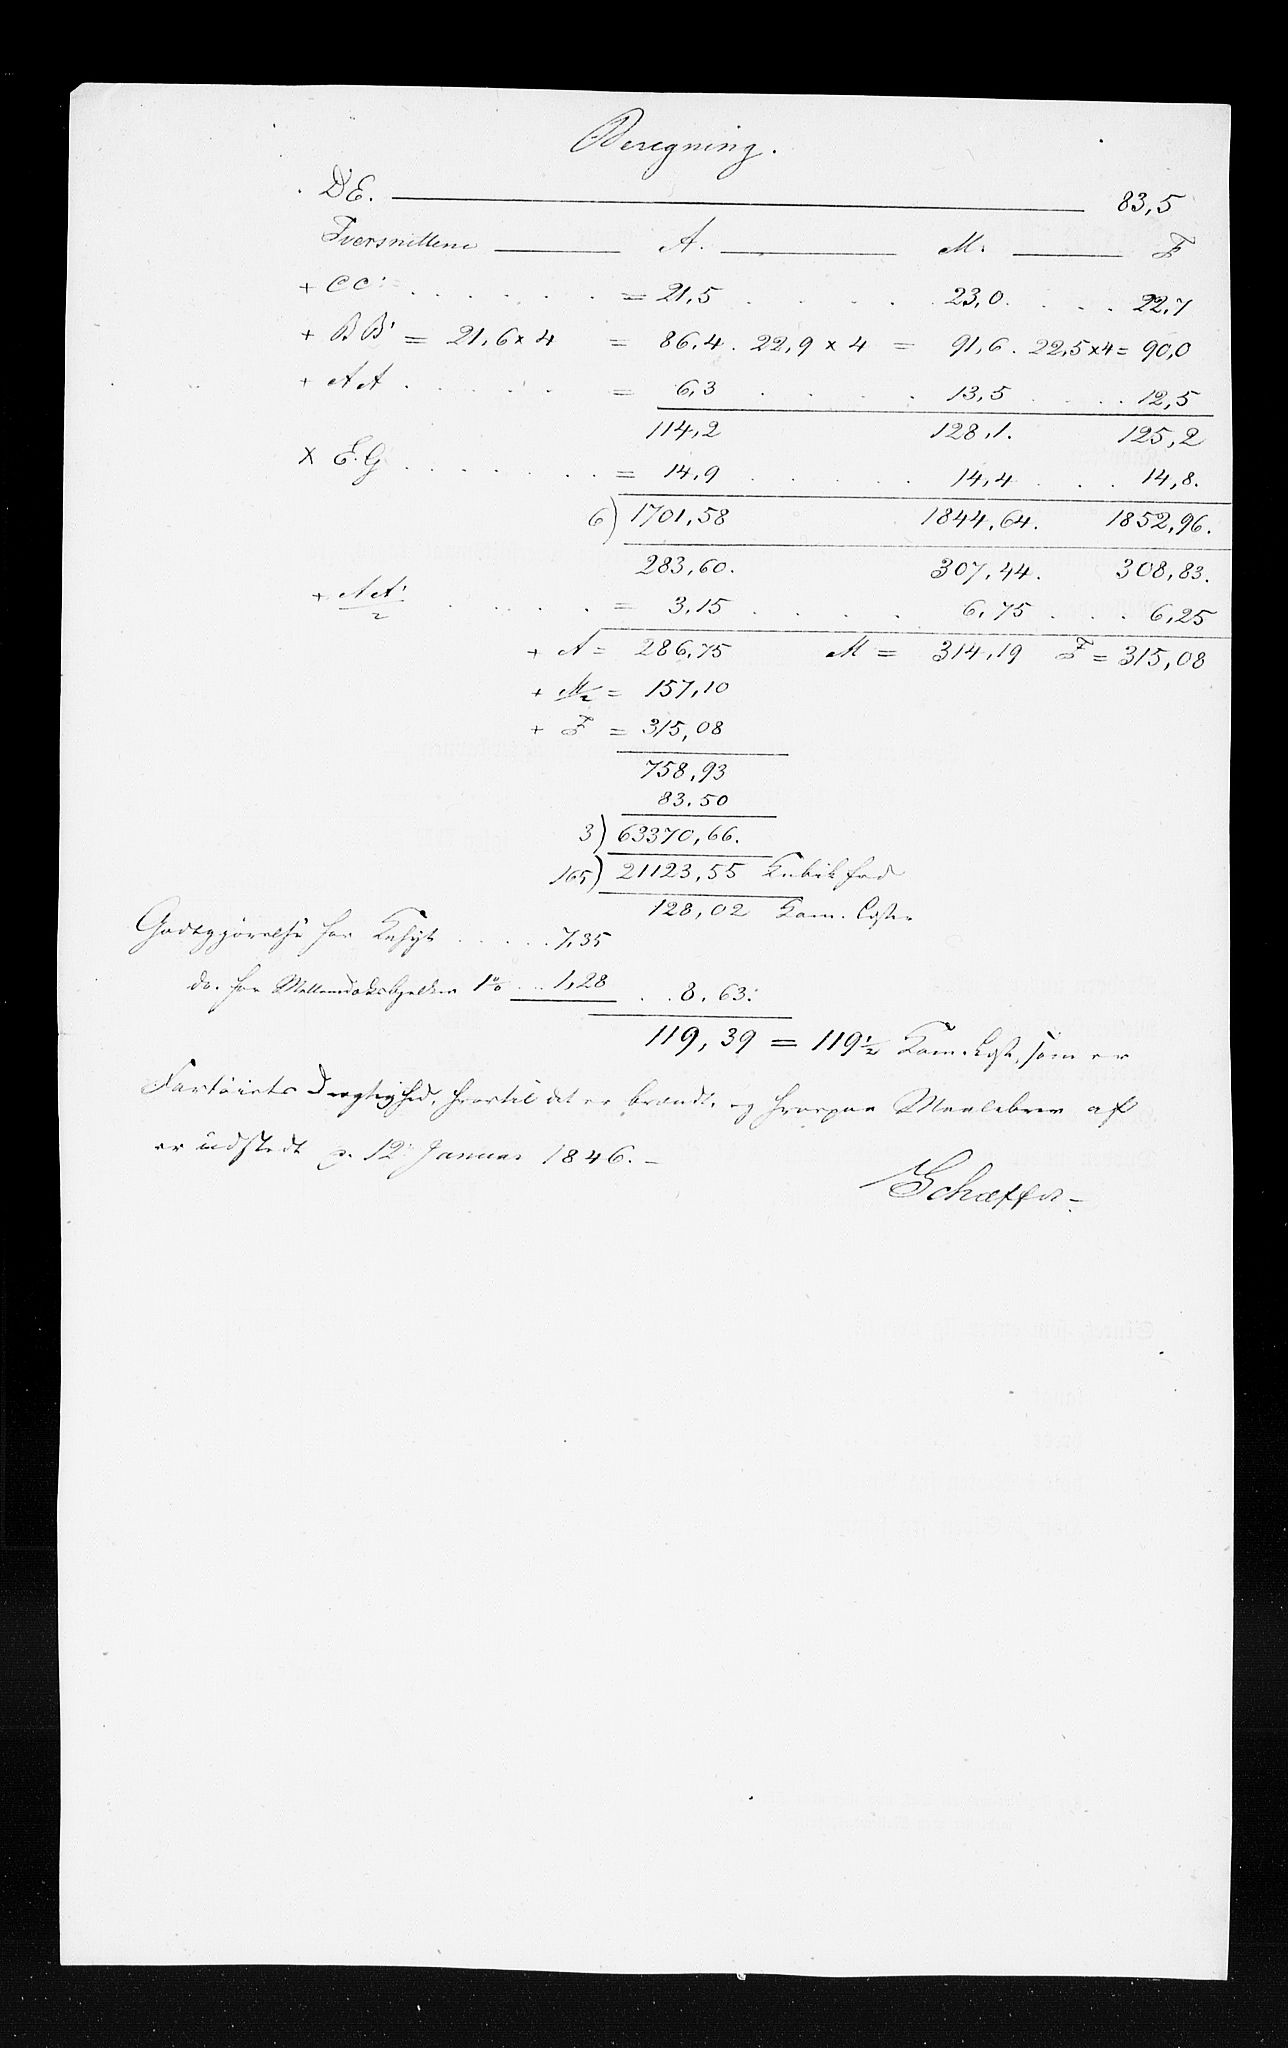 Beregning.
DE. 83,5
Tversnittene A. M. F
+ CC' = 21,5 . . . . 23,0. . . . 22,7
+ BB' = 21,6 x 4 = 86,4 . 22,9 x 4 = 91,6 . 22,5 x 4 = 90,0
+ AA . . . . . = 6,3 . . . . 13,5 . . . . 12,5
114,2 128,1. 125,2
X E.G . . . . . . = 14,9 . . . . . 14,4 . . . 14,8.
6) 1701,58 1844,64. 1852,96.
283,60. 307,44. 308,83.
+ AA'/2 . . . . . = 3,15 . . . . 6,75 . . . 6,25
+ A = 286,75 M = 314,19 F = 315,08
+ M/2 = 157,10
+ F = 315,08
758,93
83.50
3) 63370,66.
165) 21123,55 Kubikfod
128,02 Kom. Læster
Godtgjørelse for Kahyt . . . . . 7,35
do. for Mellemdæksbjelker 1% . . . 1,28 . . 8.63.
119,39 = 119 1/2 Kom. Læst., som er
Fartöiets Drægtighed, hvortil det er brændt, og hvorpaa Maalebrev af
er udstedt p. 12 Januar 1846. –
Schæffer